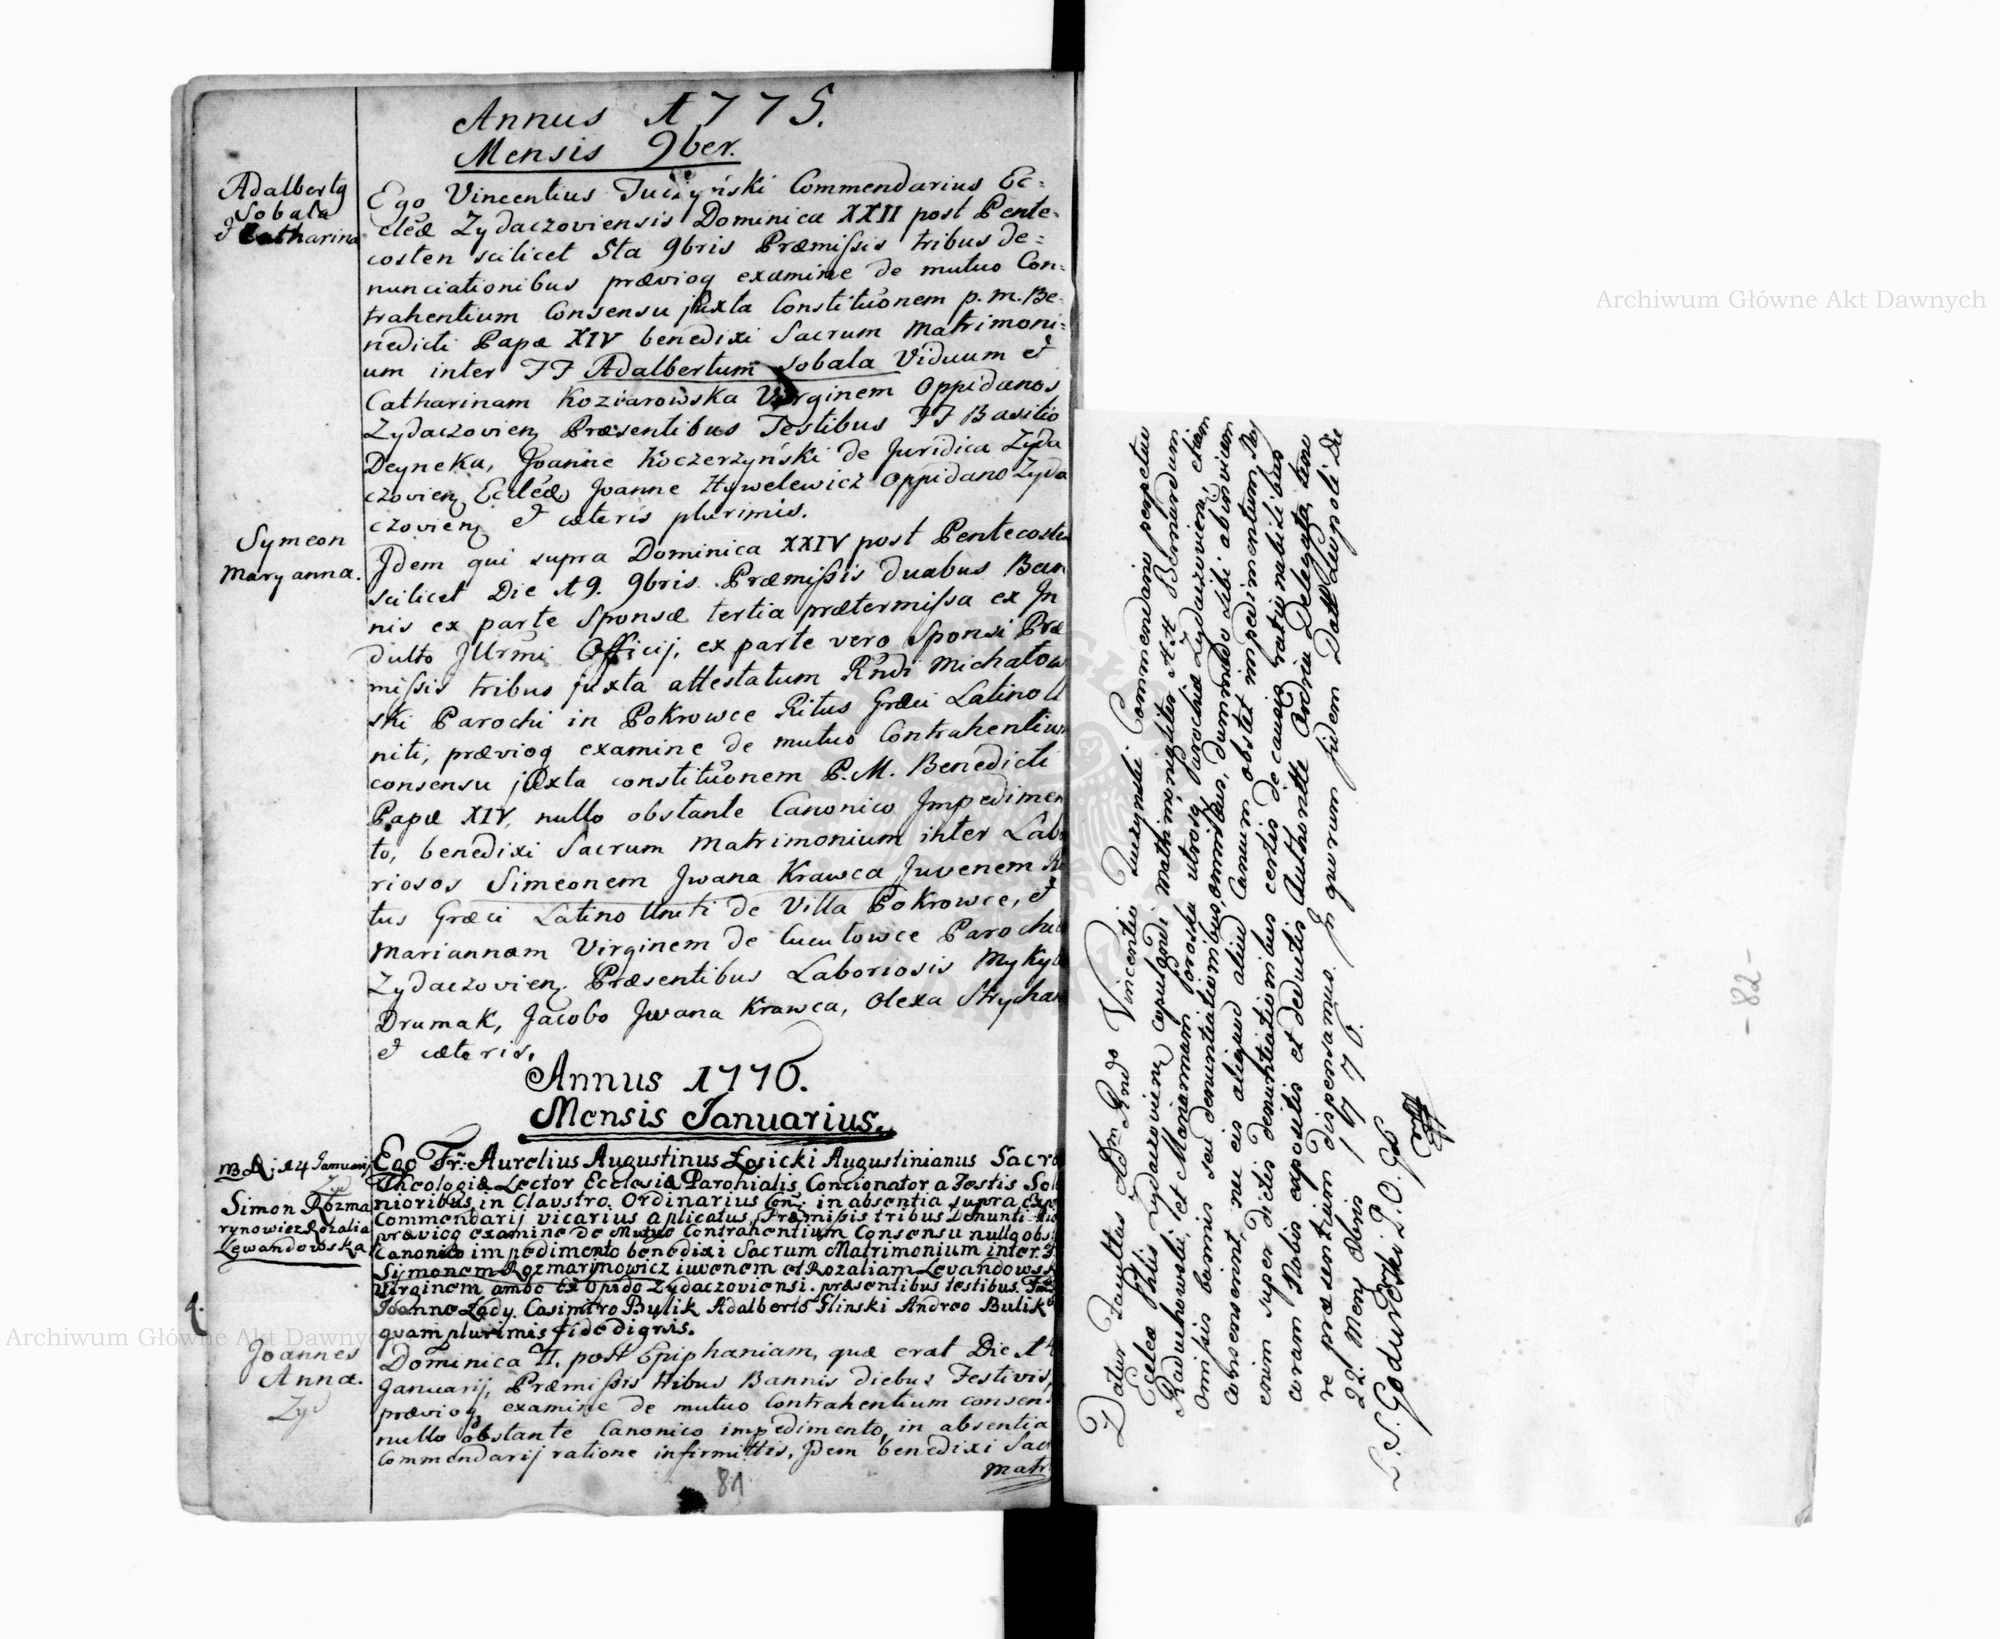 Annus 1775.
Mensis 9ber.
Adalbertq
Sobala
et Catharina
Ego Vincentius Tuczyński Commendarius Ec:
cleæ Zydaczoviensis Dominica XXII post Pente-
costen scilicet 5ta 9bris Præmissis tribus de:
nunciationibus prævioq examine de mutuo Con:
trahentium Consensu juxta Constituonem p. m. Be:
nedicti Papæ XIV benedixi Sacrum Matrimoni:
um inter FF Adalbertum Sobala Viduum et
Catharinam Koziarowska Virginem Oppidanos
Zydaczovien Præsentibus Testibus FF Basilio
Deyneka, Joanne Koczerzyński de Juridica Zyda
czovien Eccleæ Joanne Hywelewicz Oppidano Zyda
czovien et cæteris plurimis.
Symeon
Maryanna.
Jdem qui supra Dominica XXIV post Pentecosten
scilicet Die 19. 9bris. Præmissis duabus Ban
nis ex parte Sponsæ tertia prætermissa ex Jn
dulto Jllrmi Officij, ex parte vero Sponsi Præ
missis tribus juxta attestatum Rndi Michałow
ski Parochi in Pokrowce Ritus Græci Latino U
niti, prævioq examine de mutuo Contrahentium
consensu juxta constituonem P. M. Benedicti
Papæ XIV, nullo obstante Canonico Jmpedimen
to, benedixi Sacrum Matrimonium inter Labo
riosos Simeonem Jwana Krawca Juvenem Ri
tus Græci Latino Uniti de Villa Pokrowce, et
Mariannam Virginem de Cucułowce Parochiæ
Zydaczovien. Præsentibus Laboriosis Myky
Drumak, Jacobo Jwana Krawca, Olexa Strychar
et cæteris.
Annus 1776.
Mensis Januarius.
14 Januarij
Zyd
Simon Rozma
rynowicz Rozalia
Lewandowska
Ego Fr: Aurelius Augustinus Łosicki Augustinianus Sacræ
Theologiæ Lector Ecclesiæ Parohialis Concionator a Festis Sole
nioribus in Claustro. Ordinarius Con: in absentia supra
Commendarij vicarius aplicatus, Præmissis tribus Denunti
prævioq examine de Mutuo Contrahentium Consensu nullo obs
Canonico impedimento benedixi Sacrum Matrimonium inter.
Symonem Rozmarynowicz iuvenem et Rozaliam Levandowsk
Virginem ambo ex Opido Zydaczoviensi. præsentibus testibus.
Joanne Lady. Casimiro Bylik Adalberto Glinski Andreo Bulik
quam plurimis fide dignis.
4.
Joannes
Anna.
Zyd
Dominica II. post Epiphaniam, quæ erat Die 14
Januarij, Præmissis tribus Bannis diebus Festivis,
prævioq examine de mutuo Contrahentium consens
nullo obstante Canonico impedimento, in absentia
Commendarij ratione infirmittis, Jdem benedixi Sac
Matr
81
Datur facultas Adm Rndo Vincentio Tuczynski Commendario perpetuo
Eccleæ Zydaczovien copulandi matrimonialiter A.A. Bernardum
Raduchowski et Mariannam utrosq parochiæ Zydaczovien, etiam
omissis bannis seu denuntiationibus omnibus, dummodo sibi ab invicem
consenserint, nec eis aliquod aliud Canum obstet impedimentum. Nos
enim super dictis denuntiationibus certis de causis rationabilibus
coram Nobis expositis et deductis Authoritte Ordria Delegata teno
re præsentium dispensamus. In quorum fidem Datt Leopoli Die
22. Mens 1776.
L.S. Godurowski P.O.
-82-
Archiwum Główne Akt Dawnych
Archiwum Główne Akt Dawnych